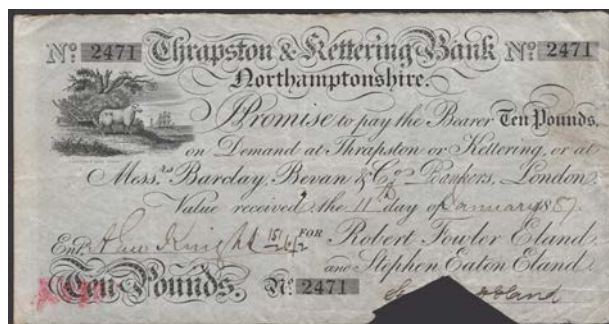 No. 2471 Thrapston & Kettering Bank No. 2471
Northamptonshire.
I Promise to pay the Bearer Ten Pounds,
on Demand at Thrapston or Kettering, or at
Messrs. Barclay, Bevan & Co. Bankers, London.
Value received, the 11 day of January 1887
Entd. Knight FOR Robert Fowler Eland
and Stephen Eaton Eland.
Ten Pounds. No. 2471
Eland